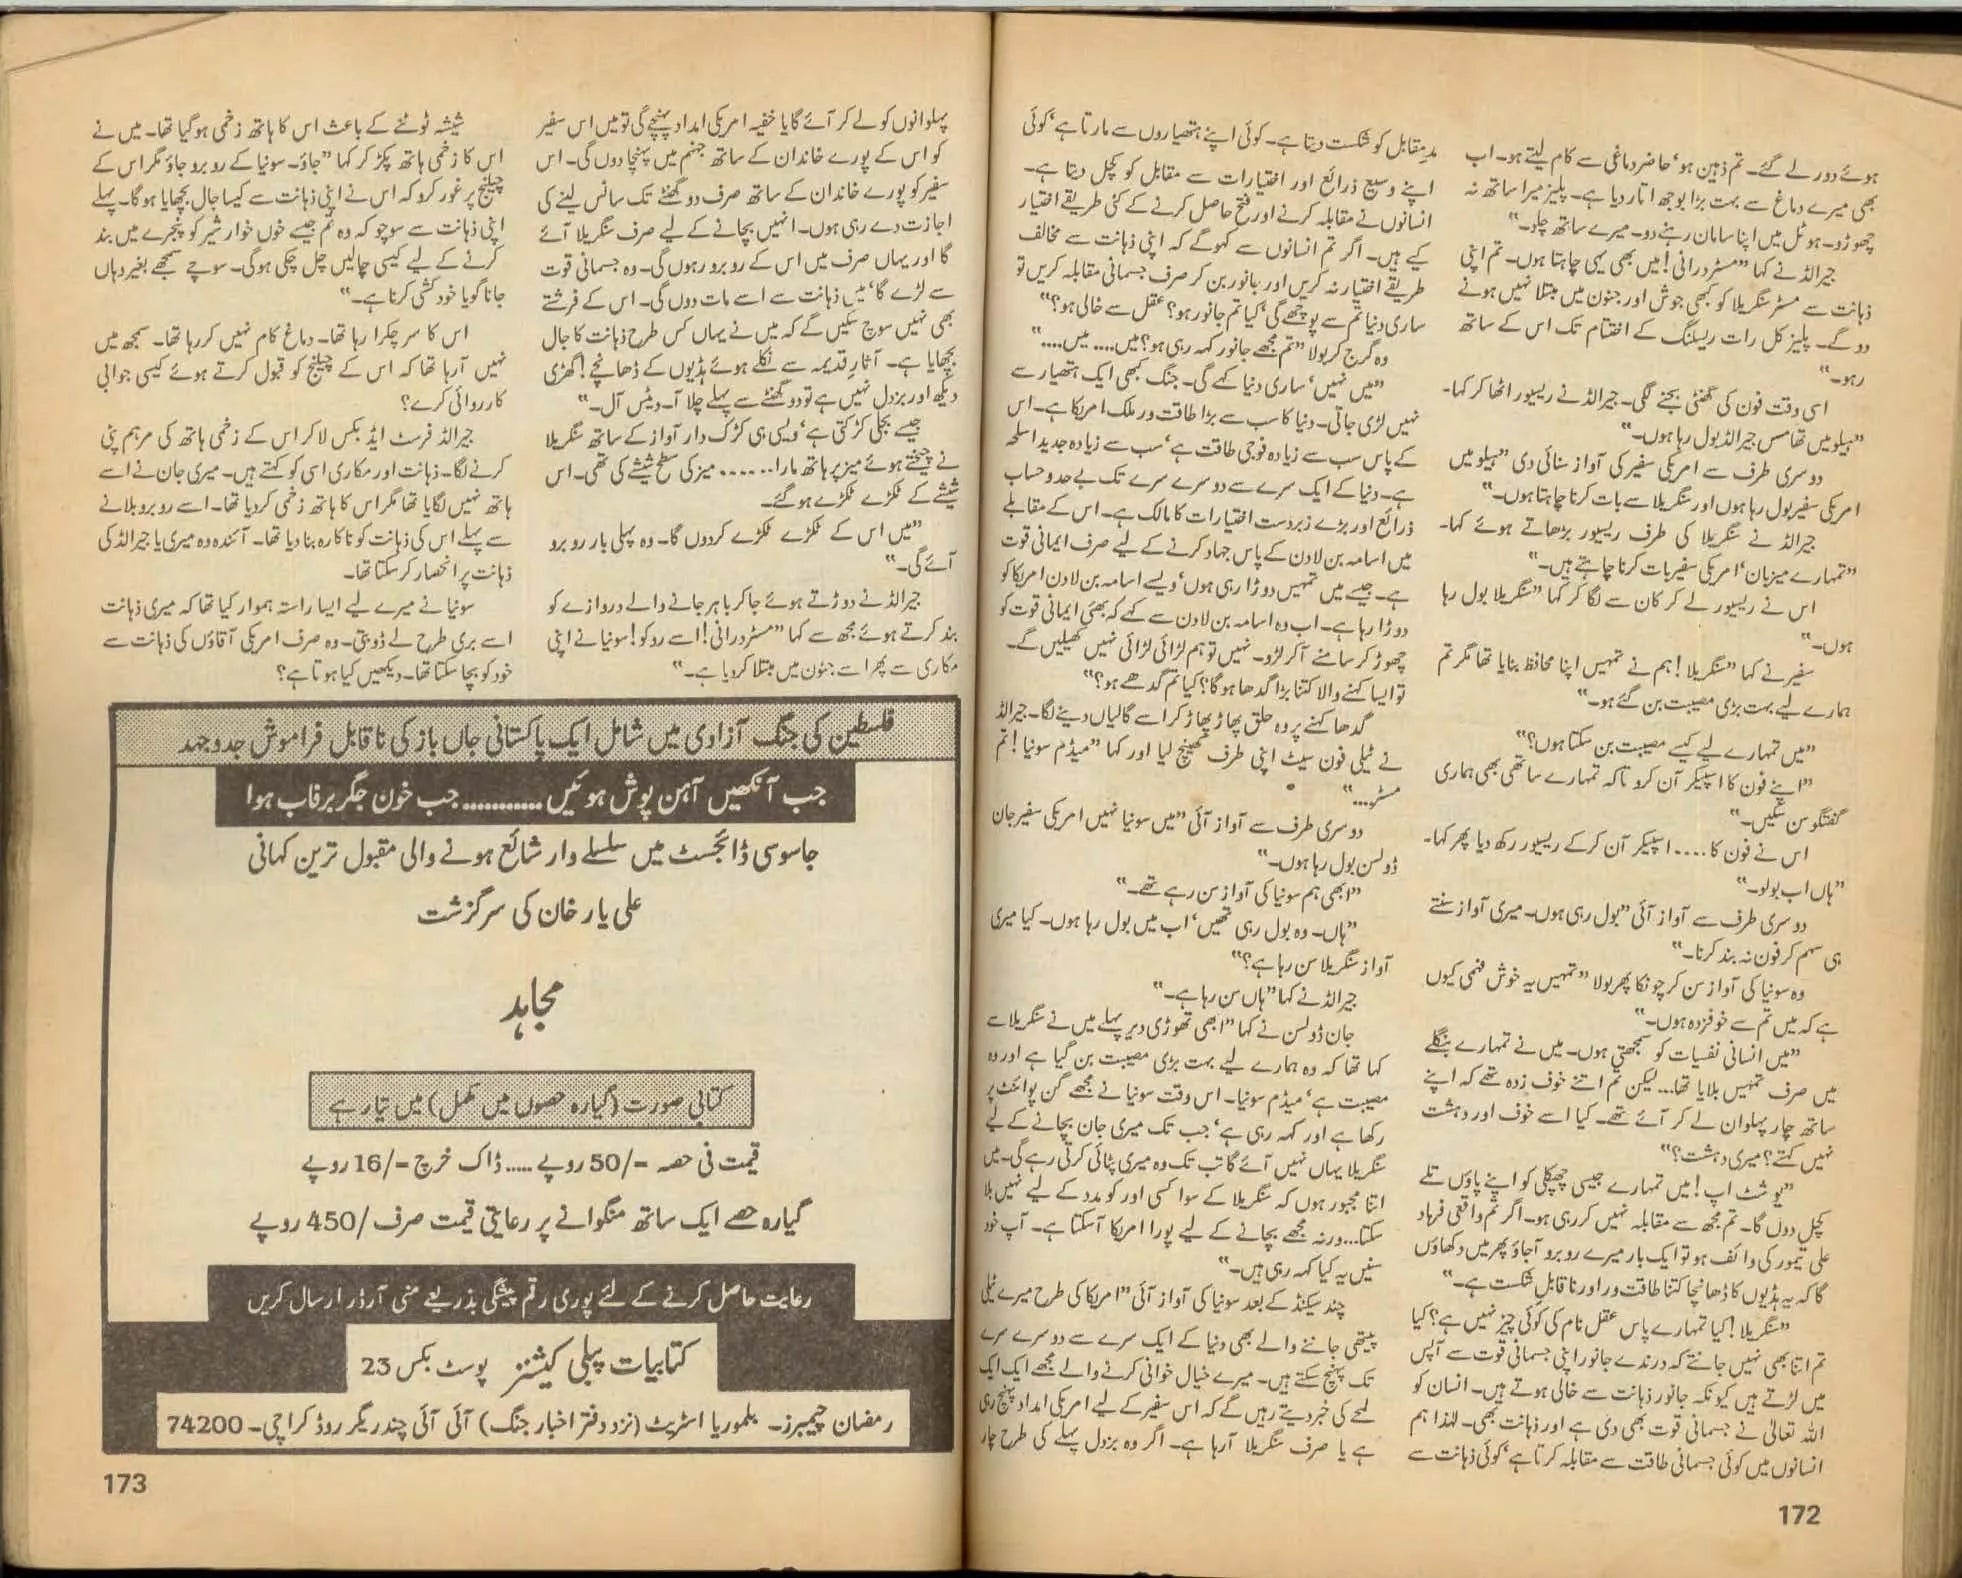 ہوئے دور لے گئے۔ تم ذہین ہو‘ حاضر دماغی سے کام لیتے ہو۔ اب
بھی میرے دماغ سے بہت بڑا بوجھ اتار دیا ہے۔ پلیز میرا ساتھ نہ
چھوڑو۔ ہوٹل میں اپنا سامان رہنے دو۔ میرے ساتھ چلو۔"
جیرالڈ نے کہا "مسٹر درانی! میں بھی یہی چاہتا ہوں۔ تم اپنی
ذہانت سے مسٹر سنگریلا کو کبھی جوش اور جنون میں مبتلا نہیں ہونے
دو گے۔ پلیز کل رات ریسلنگ کے اختتام تک اس کے ساتھ
رہو۔"
اسی وقت فون کی گھنٹی بجنے لگی۔ جیرالڈ نے ریسیور اٹھا کر کہا۔
"ہیلو میں تھامس جیرالڈ بول رہا ہوں۔"
دوسری طرف سے امریکی سفیر کی آواز سنائی دی "ہیلو میں
امریکی سفیر بول رہا ہوں اور سنگریلا سے بات کرنا چاہتا ہوں۔"
جیرالڈ نے سنگریلا کی طرف ریسیور بڑھاتے ہوئے کہا۔
"تمہارے میزبان‘ امریکی سفیر بات کرنا چاہتے ہیں۔"
اس نے ریسیور لے کر کان سے لگا کر کہا "سنگریلا بول رہا
ہوں۔"
سفیر نے کہا "سنگریلا! ہم نے تمہیں اپنا محافظ بنایا تھا مگر تم
ہمارے لیے بہت بڑی مصیبت بن گئے ہو۔"
"میں تمہارے لیے کیسے مصیبت بن سکتا ہوں؟"
"اپنے فون کا اسپیکر آن کرو تاکہ تمہارے ساتھی بھی ہماری
گفتگو سن سکیں۔"
اس نے فون کا.... اسپیکر آن کرکے ریسیور رکھ دیا پھر کہا۔
"ہاں اب بولو۔"
دوسری طرف سے آواز آئی "بول رہی ہوں۔ میری آواز سنتے
ہی سہم کر فون نہ بند کرنا۔"
وہ سونیا کی آواز سن کر چونکا پھر بولا "تمہیں یہ خوش فہمی کیوں
ہے کہ میں تم سے خوفزدہ ہوں۔"
"میں انسانی نفسیات کو سمجھتی ہوں۔ میں نے تمہارے بنگلے
میں صرف تمہیں بلایا تھا... لیکن تم اتنے خوف زدہ تھے کہ اپنے
ساتھ چار پہلوان لے کر آئے تھے۔ کیا اسے خوف اور دہشت
نہیں کہتے؟ میری دہشت؟"
"یو شٹ اپ! میں تمہارے جیسی چھپکلی کو اپنے پاؤں تلے
کچل دوں گا۔ تم مجھ سے مقابلہ نہیں کر رہی ہو۔ اگر تم واقعی فرہاد
علی تیمور کی وائف ہو تو ایک بار میرے روبرو آجاؤ پھر میں دکھاؤں
گا کہ یہ ہڈیوں کا ڈھانچا کتنا طاقت ور اور ناقابلِ شکست ہے۔"
"سنگریلا! کیا تمہارے پاس عقل نام کی کوئی چیز نہیں ہے؟ کیا
تم اتنا بھی نہیں جانتے کہ درندے جانور اپنی جسمانی قوت سے آپس
میں لڑتے ہیں کیونکہ جانور ذہانت سے خالی ہوتے ہیں۔ انسان کو
اللہ تعالیٰ نے جسمانی قوت بھی دی ہے اور ذہانت بھی۔ لہٰذا ہم
انسانوں میں کوئی جسمانی طاقت سے مقابلہ کرتا ہے‘ کوئی ذہانت سے
172
مدِمقابل کو شکست دیتا ہے۔ کوئی اپنے ہتھیاروں سے مارتا ہے‘ کوئی
اپنے وسیع ذرائع اور اختیارات سے مقابل کو کچل دیتا ہے۔
انسانوں نے مقابلہ کرنے اور فتح حاصل کرنے کے کئی طریقے اختیار
کیے ہیں۔ اگر تم انسانوں سے کہو گے کہ اپنی ذہانت سے مخالف
طریقے اختیار نہ کریں اور جانور بن کر صرف جسمانی مقابلہ کریں تو
ساری دنیا تم سے پوچھے گی‘ کیا تم جانور ہو؟ عقل سے خالی ہو؟"
وہ گرج کر بولا "تم مجھے جانور کہہ رہی ہو؟ میں.... میں...."
"میں نہیں‘ ساری دنیا کہے گی۔ جنگ کبھی ایک ہتھیار سے
نہیں لڑی جاتی۔ دنیا کا سب سے بڑا طاقت ور ملک امریکا ہے۔ اس
کے پاس سب سے زیادہ فوجی طاقت ہے‘ سب سے زیادہ جدید اسلحہ
ہے۔ دنیا کے ایک سرے سے دوسرے سرے تک بے حد و حساب
ذرائع اور بڑے زبردست اختیارات کا مالک ہے۔ اس کے مقابلے
میں اسامہ بن لادن کے پاس جہاد کرنے کے لیے صرف ایمانی قوت
ہے۔ جیسے میں تمہیں دوڑا رہی ہوں‘ ویسے اسامہ بن لادن امریکا کو
دوڑا رہا ہے۔ اب وہ اسامہ بن لادن سے کہے کہ بھئی ایمانی قوت کو
چھوڑ کر سامنے آکر لڑو۔ نہیں تو ہم لڑائی لڑائی نہیں کھیلیں گے۔
تو ایسا کہنے والا کتنا بڑا گدھا ہوگا؟ کیا تم گدھے ہو؟"
گدھا کہنے پر وہ حلق پھاڑ پھاڑ کر اسے گالیاں دینے لگا۔ جیرالڈ
نے ٹیلی فون سیٹ اپنی طرف کھینچ لیا اور کہا "میڈم سونیا! تم
مسٹر...."
دوسری طرف سے آواز آئی "میں سونیا نہیں امریکی سفیر جان
ڈولسن بول رہا ہوں۔"
"ابھی ہم سونیا کی آواز سن رہے تھے۔"
"ہاں۔ وہ بول رہی تھیں‘ اب میں بول رہا ہوں۔ کیا میری
آواز سنگریلا سن رہا ہے؟"
جیرالڈ نے کہا "ہاں سن رہا ہے۔"
جان ڈولسن نے کہا "ابھی تھوڑی دیر پہلے میں نے سنگریلا سے
کہا تھا کہ وہ ہمارے لیے بہت بڑی مصیبت بن گیا ہے اور وہ
مصیبت ہے‘ میڈم سونیا۔ اس وقت سونیا نے مجھے گن پوائنٹ پر
رکھا ہے اور کہہ رہی ہے‘ جب تک میری جان بچانے کے لیے
سنگریلا یہاں نہیں آئے گا تب تک وہ میری پٹائی کرتی رہے گی۔ میں
اتنا مجبور ہوں کہ سنگریلا کے سوا کسی اور کو مدد کے لیے نہیں بلا
سکتا... ورنہ مجھے بچانے کے لیے پورا امریکا آسکتا ہے۔ آپ خود
سنیں یہ کیا کہہ رہی ہیں۔"
چند سیکنڈ کے بعد سونیا کی آواز آئی "امریکا کی طرح میرے ٹیلی
پیتھی جاننے والے بھی دنیا کے ایک سرے سے دوسرے سرے
تک پہنچ سکتے ہیں۔ میرے خیال خوانی کرنے والے مجھے ایک ایک
لمحے کی خبر دیتے رہیں گے کہ اس سفیر کے لیے امریکی امداد پہنچ رہی
ہے یا صرف سنگریلا آرہا ہے۔ اگر وہ بزدل پہلے کی طرح چار
پہلوانوں کو لے کر آئے گا یا خفیہ امریکی امداد پہنچے گی تو میں اس سفیر
کو اس کے پورے خاندان کے ساتھ جہنم میں پہنچا دوں گی۔ اس
سفیر کو پورے خاندان کے ساتھ صرف دو گھنٹے تک سانس لینے کی
اجازت دے رہی ہوں۔ انہیں بچانے کے لیے صرف سنگریلا آئے
گا اور یہاں صرف میں اس کے روبرو رہوں گی۔ وہ جسمانی قوت
سے لڑے گا‘ میں ذہانت سے اسے مات دوں گی۔ اس کے فرشتے
بھی نہیں سوچ سکیں گے کہ میں نے یہاں کس طرح ذہانت کا جال
بچھایا ہے۔ آثارِ قدیمہ سے نکلے ہوئے ہڈیوں کے ڈھانچے! گھڑی
دیکھ اور بزدل نہیں ہے تو دو گھنٹے سے پہلے چلا آ۔ دیٹس آل۔"
جیسے بجلی کڑکتی ہے‘ ویسی ہی کڑک دار آواز کے ساتھ سنگریلا
نے چیختے ہوئے میز پر ہاتھ مارا...... میز کی سطح شیشے کی تھی۔ اس
شیشے کے ٹکڑے ٹکڑے ہوگئے۔
"میں اس کے ٹکڑے ٹکڑے کردوں گا۔ وہ پہلی بار روبرو
آئے گی۔"
جیرالڈ نے دوڑتے ہوئے جاکر باہر جانے والے دروازے کو
بند کرتے ہوئے مجھ سے کہا "مسٹر درانی! اسے روکو! سونیا نے اپنی
مکاری سے پھر اسے جنون میں مبتلا کردیا ہے۔"
شیشہ ٹوٹنے کے باعث اس کا ہاتھ زخمی ہوگیا تھا۔ میں نے
اس کا زخمی ہاتھ پکڑ کر کہا "جاؤ۔ سونیا کے روبرو جاؤ مگر اس کے
چیلنج پر غور کرو کہ اس نے اپنی ذہانت سے کیسا جال بچھایا ہوگا۔ پہلے
اپنی ذہانت سے سوچو کہ وہ تم جیسے خوں خوار شیر کو پنجرے میں بند
کرنے کے لیے کیسی چالیں چل چکی ہوگی۔ سوچے سمجھے بغیر وہاں
جانا گویا خودکشی کرنا ہے۔"
اس کا سر چکرا رہا تھا۔ دماغ کام نہیں کر رہا تھا۔ سمجھ میں
نہیں آرہا تھا کہ اس کے چیلنج کو قبول کرتے ہوئے کیسی جوابی
کارروائی کرے؟
جیرالڈ فرسٹ ایڈ بکس لاکر اس کے زخمی ہاتھ کی مرہم پٹی
کرنے لگا۔ ذہانت اور مکاری اسی کو کہتے ہیں۔ میری جان نے اسے
ہاتھ نہیں لگایا تھا مگر اس کا ہاتھ زخمی کردیا تھا۔ اسے روبرو بلانے
سے پہلے اس کی ذہانت کو ناکارہ بنا دیا تھا۔ آئندہ وہ میری یا جیرالڈ کی
ذہانت پر انحصار کرسکتا تھا۔
سونیا نے میرے لیے ایسا راستہ ہموار کیا تھا کہ میری ذہانت
اسے بری طرح لے ڈوبتی۔ وہ صرف امریکی آقاؤں کی ذہانت سے
خود کو بچا سکتا تھا۔ دیکھیں کیا ہوتا ہے؟
فلسطین کی جنگ آزادی میں شامل ایک پاکستانی جاں باز کی ناقابل فراموش جدوجہد
جب آنکھیں آہن پوش ہوئیں............ جب خون جگر برفاب ہوا
جاسوسی ڈائجسٹ میں سلسلے وار شائع ہونے والی مقبول ترین کہانی
علی یار خان کی سرگزشت
مجاہد
کتابی صورت (گیارہ حصوں میں مکمل) میں تیار ہے
قیمت فی حصہ -/50 روپے ..... ڈاک خرچ -/16 روپے
گیارہ حصے ایک ساتھ منگوانے پر رعایتی قیمت صرف /450 روپے
رعایت حاصل کرنے کے لئے پوری رقم پیشگی بذریعے منی آرڈر ارسال کریں
کتابیات پبلی کیشنز پوسٹ بکس 23
رمضان چیمبرز۔ بلموریا اسٹریٹ (نزد دفتر اخبار جنگ) آئی آئی چندریگر روڈ کراچی۔ 74200
173